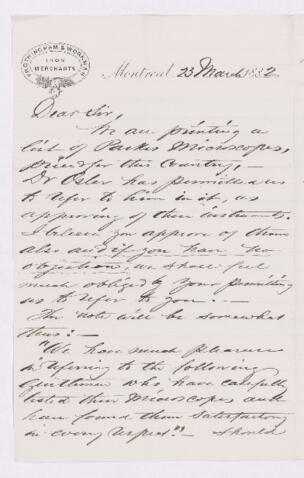 FROTHINGHAM & WORKMAN
IRON
MERCHANTS
Montreal, 23 March 1882
Dear Sir,
We are printing a
list of Parkes Microscopes,
priced for this Country,—
Dr Osler has permitted us
to refer to him in it, as
approving of their instruments.
I believe you approve of them
also and if you have no
objection, we shall feel
much obliged by your permitting
us to refer to you.—
The note will be somewhat
thus:—
"We have much pleasure
in referring to the following
Gentlemen who have carefully
tested these Microscopes and
have found them satisfactory
in every respect"— Should